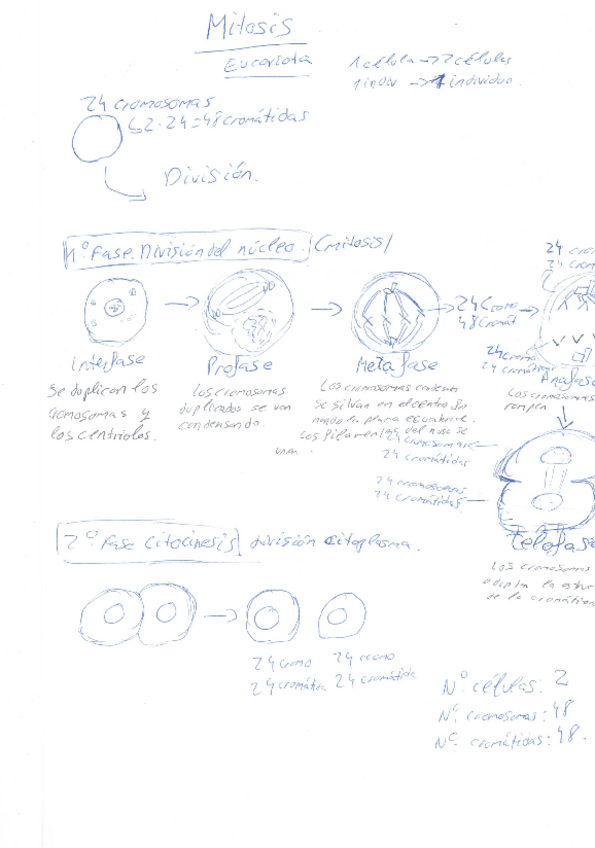 Mitosis
Eucariota
1 célula → 2 células
1 indiv → 1 individuo.
24 cromosomas
2·24=48 cromátidas
División.
1º Fase. División del núcleo. (mitosis)
24 cro
24 crom
24 Cromo
48 Cromát
24 cromo
24 cromát
Interfase
Profase
Metafase
Anafase
Se duplican los
cromosomas y
los centriolos.
Los cromosomas
duplicados se van
condensando.
Los cromosomas
se sitúan en el centro
la placa ecuatorial.
Los filamentos del
Los cromosomas
rompen
24 cromosomas
24 cromátidas
24 cromosomas
24 cromátidas
Telofase
Los cromosomas
adoptan la estru
de la cromatina
2º Fase Citocinesis división citoplasma.
24 cromo 24 cromo
24 cromátida 24 cromátida
Nº células: 2
Nº cromosomas: 48
Nº cromátidas: 48.